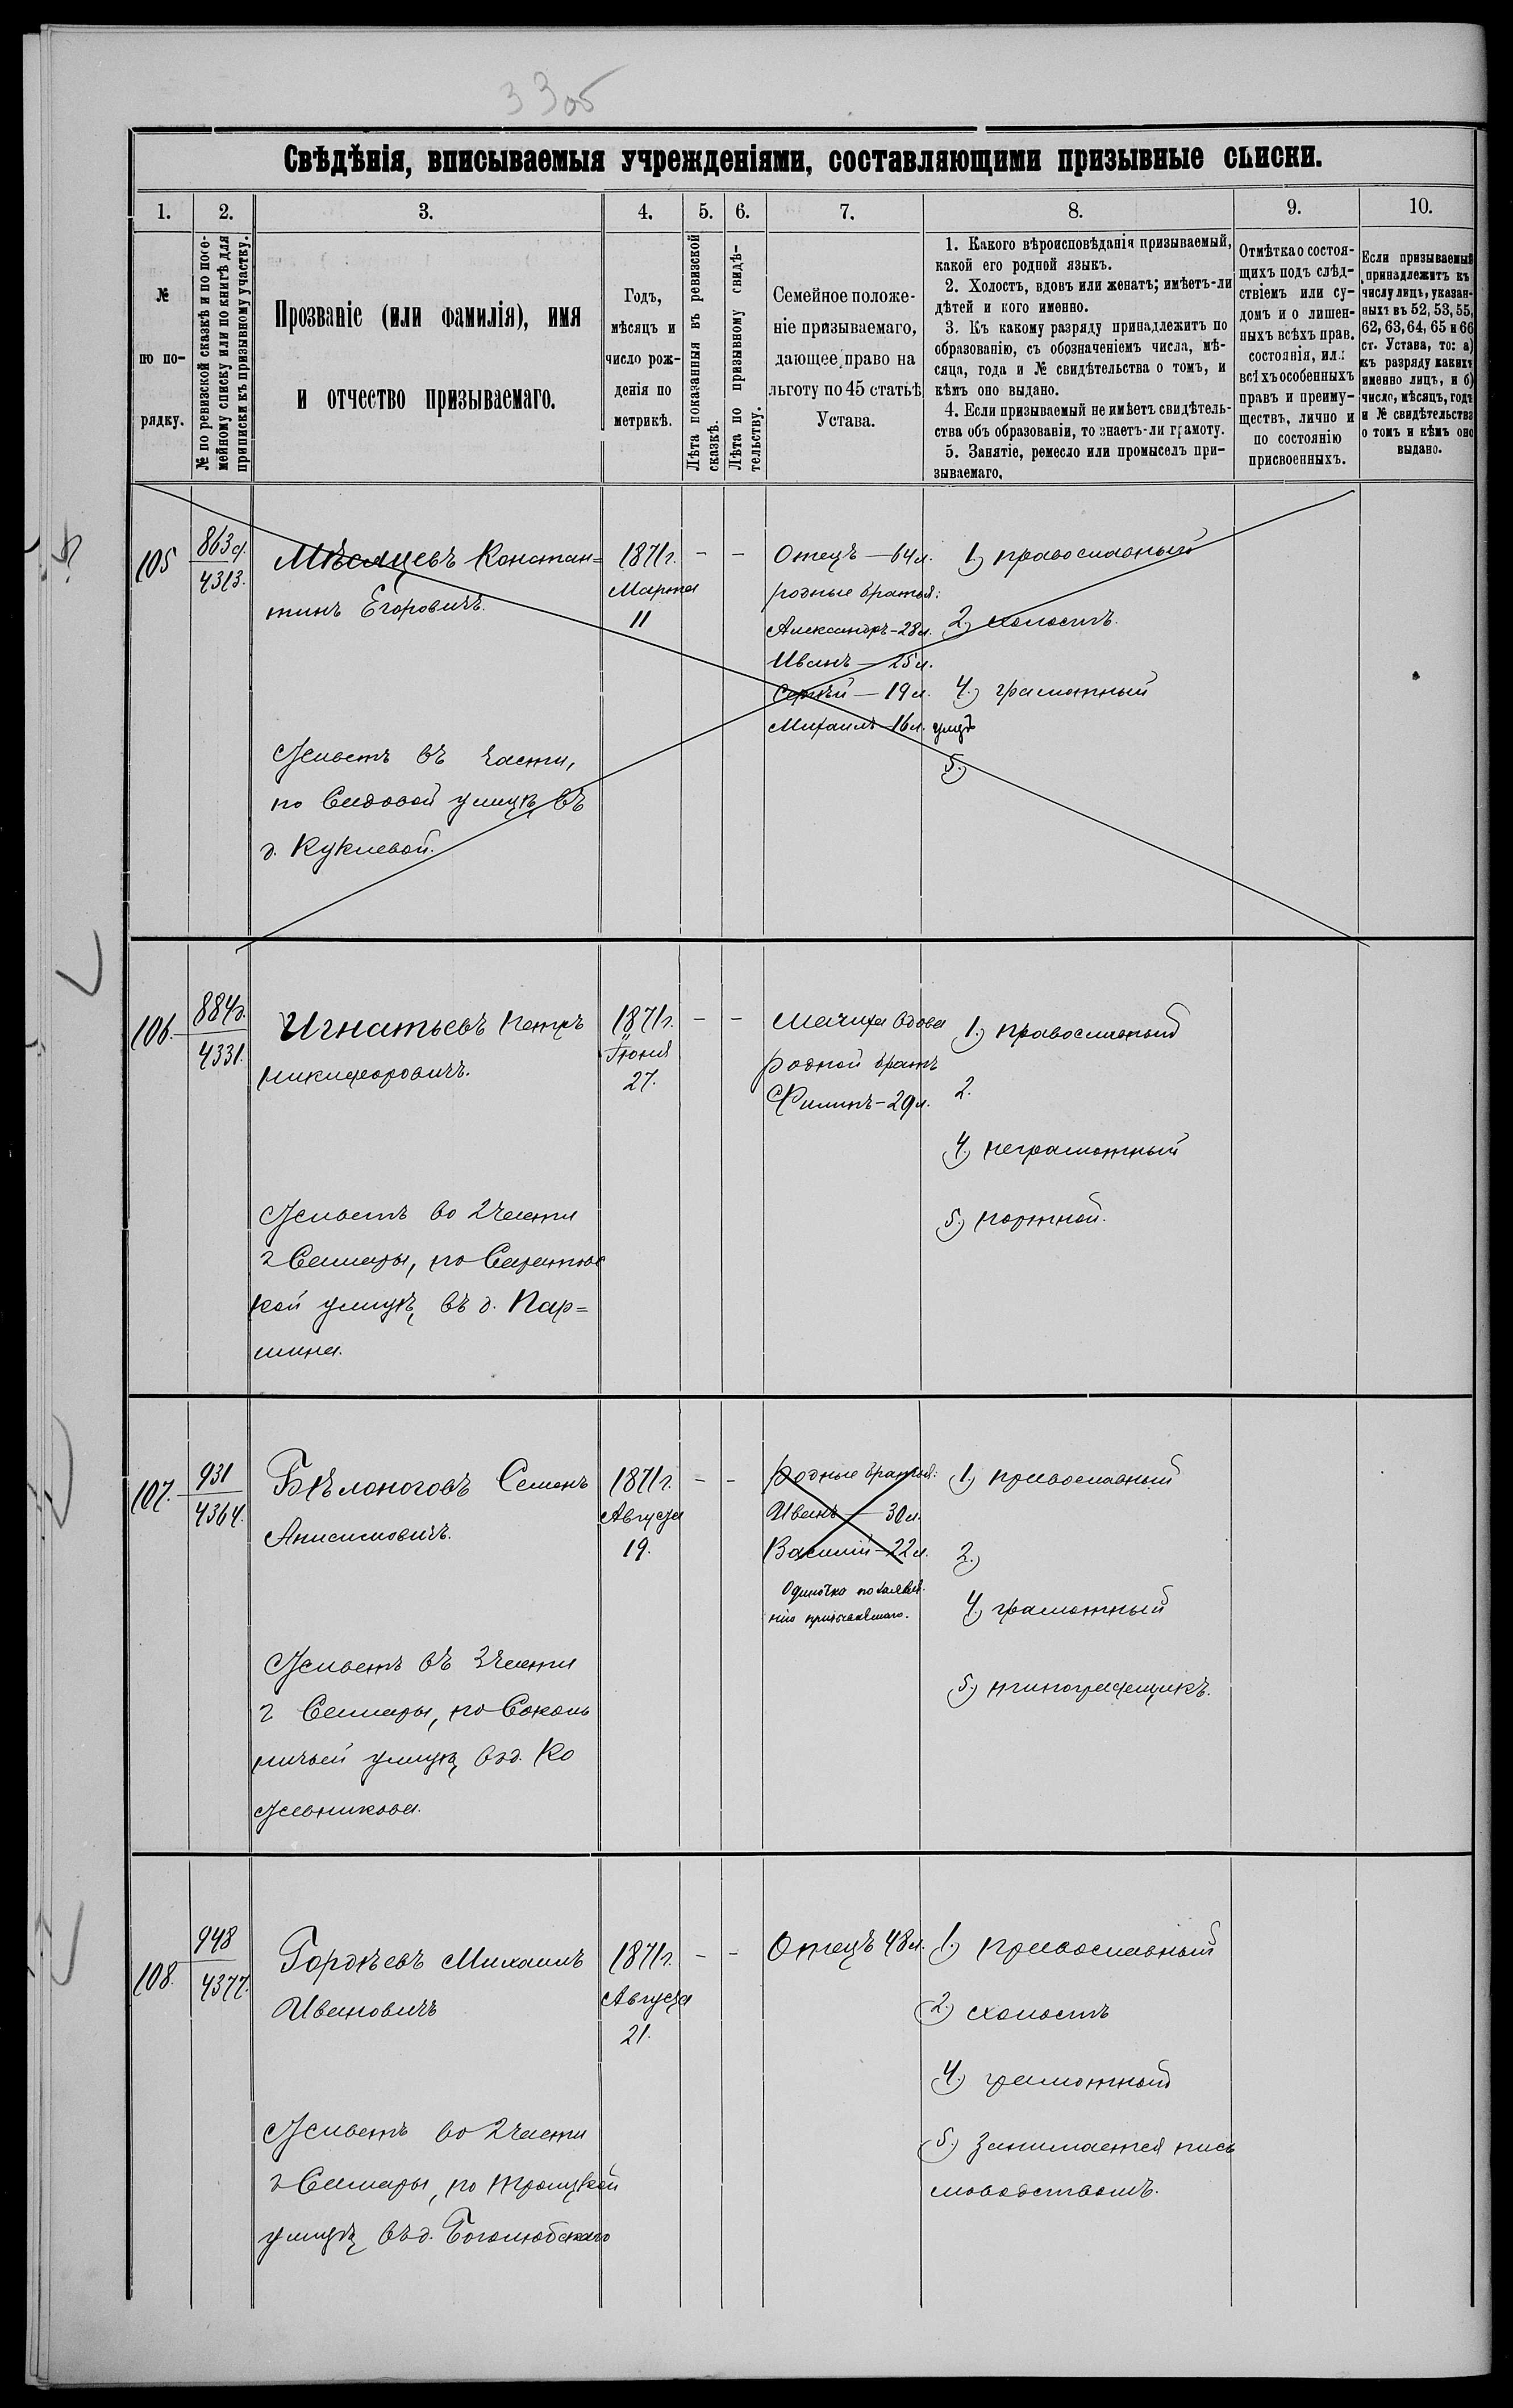 33об
Свѣдѣнія, вписываемыя учрежденіями, составляющими призывные списки.
1. 2. 3. 4. 5. 6. 7. 8. 9. 10.
№
по по-
рядку.
№ по ревизской сказкѣ и по посе-
мейному списку или по книгѣ для
приписки къ призывному участку.
Прозваніе (или фамилія), имя
и отчество призываемаго.
Годъ,
мѣсяцъ и
число рож-
денія по
метрикѣ.
Лѣта показанныя въ ревизской
сказкѣ.
Лѣта по призывному свидѣ-
тельству.
Семейное положе-
ніе призываемаго,
дающее право на
льготу по 45 статьѣ
Устава.
1. Какого вѣроисповѣданія призываемый,
какой его родной языкъ.
2. Холостъ, вдовъ или женатъ; имѣетъ-ли
дѣтей и кого именно.
3. Къ какому разряду принадлежитъ по
образованію, съ обозначеніемъ числа, мѣ-
сяца, года и № свидѣтельства о томъ, и
кѣмъ оно выдано.
4. Если призываемый не имѣетъ свидѣтель-
ства объ образованіи, то знаетъ-ли грамоту.
5. Занятіе, ремесло или промыселъ при-
зываемаго.
Отмѣтка о состоя-
щихъ подъ слѣд-
ствіемъ или су-
домъ и о лишен-
ныхъ всѣхъ прав.
состоянія, или
всѣхъ особенныхъ
правъ и преиму-
ществъ, лично и
по состоянію
присвоенныхъ.
Если призываемый
принадлежитъ къ
числу лицъ, указан-
ныхъ въ 52, 53, 55,
62, 63, 64, 65 и 66
ст. Устава, то: а)
къ разряду какихъ
именно лицъ, и б)
число, мѣсяцъ, годъ
и № свидѣтельства
о томъ и кѣмъ оно
выдано.
105
863
4313.
Мѣсяцевъ Констан=
тинъ Егоровичъ.
1871г.
Марта
11
— —
Отецъ — 64л.
родные братья:
Александръ — 28л.
Иванъ — 25л.
Сергѣй — 19л.
Михаилъ — 16л.
1.) православный
2.) холостъ.
4.) грамотный
5.)
Живетъ въ части,
по Садовой улицѣ, въ
д. Куклевой.
106.
884
4331.
Игнатьевъ Петръ
Никифоровичъ.
1871г.
Іюня
27.
— —
Мачиха вдова
родной братъ
Филипъ — 29л.
1.) православный
2.
4.) неграмотный
5.) портной.
Живетъ во 2 части
г Самары, по Саратов
кой улицѣ, въ д. Пар=
шина.
107.
931
4364.
Бѣлоноговъ Семенъ
Анисимовичъ.
1871г.
Августа
19.
— —
родные братья:
Иванъ — 30л.
Василій — 22л.
Одиночка по заявле
нію призываемаго.
1.) православный
2.)
4.) грамотный
5.) типографщикъ.
Живетъ въ 2 части
г Самары, по Соколь
ничьей улицѣ, въ д. Ко
жевникова.
108.
948
4377.
Гордѣевъ Михаилъ
Ивановичъ
1871г.
Августа
21.
— —
Отецъ 48л.
1.) православный
2.) холостъ
4.) грамотный
5.) Занимается пись
моводствомъ.
Живетъ во 2 части
г Самары, по Троицкой
улицѣ, въ д. Боголюбскаго